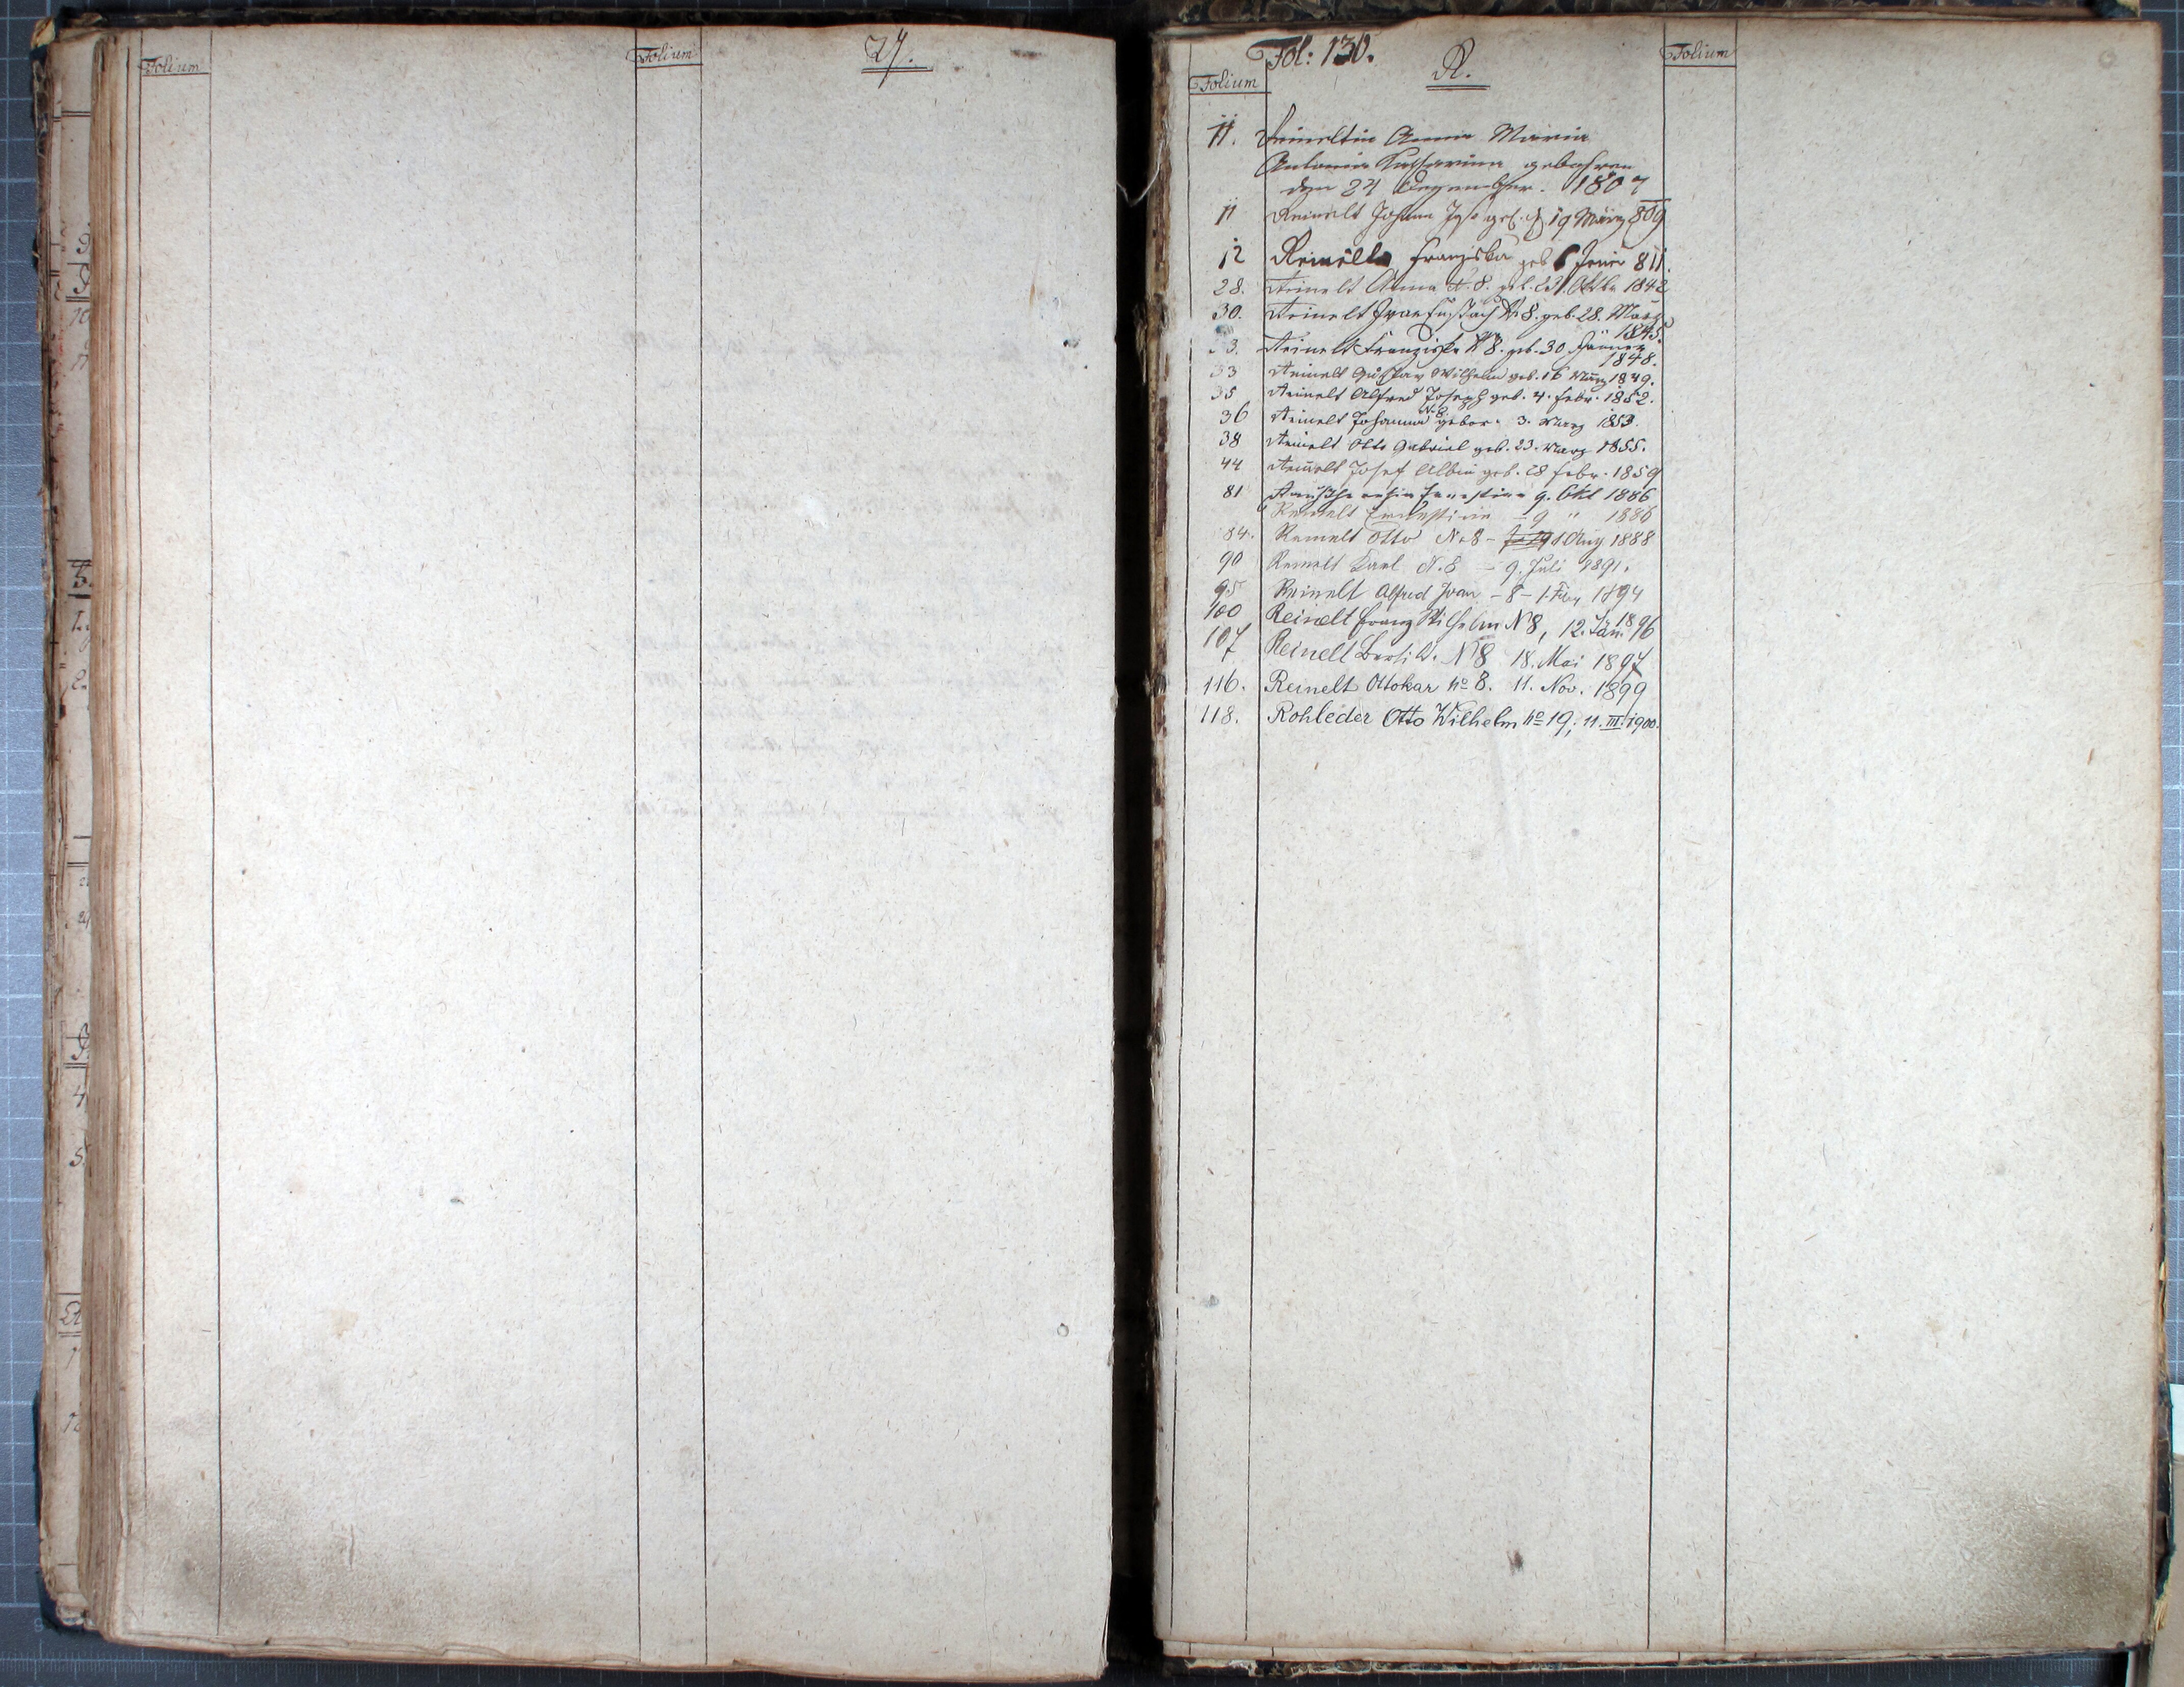 Folium
Folium
Fol: 130.
R.
Folium
Folium
11. Reineltin Anna Maria
Antonia Katharina gebohren
den 24 Dezember. 1807
11 Reinelt Johann geb. 19 März 809
12 Reinelt Franziska geb 6 811.
28. Reinelt Anna N. 8. geb. 231. Oktbr 1842
30. Reinelt N. 8. geb. 28. März
1845.
3. Reinelt Franziska N 8. geb. 30. Jänner
1848.
33 Reinelt Gustav Wilhelm geb. 16 März 1849.
35 Reinelt Alfred Joseph geb. 4. Febr. 1852.
N. 8
36 Reinelt Johanna gebor. 3. März 1853.
38 Reinelt Otto Gabriel geb. 23. März 1855.
44 Reinelt Josef Albin geb. 28 Febr. 1859
81 9. Okt 1886
Reinelt Ernestine – 9 " 1886
84. Reinelt Otto N. 8 – Aug 1888
90 Reinelt Karl N. 8 – 9. Juli 1891.
95 Reinelt Alfred – 8 – 1. 1894
100 Reinelt Franz Wilhelm N 8, 12. Jän. 1896
107 Reinelt N 8 18. Mai 1897
116. Reinelt Ottokar No 8. 11. Nov. 1899
118. Rohleder Otto Wilhelm No 19; 11. III. 1900.